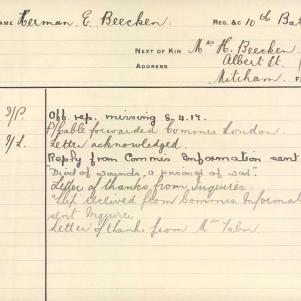 NAME Herman E. Beecken REG. &C 10th Bat
NEXT OF KIN Mrs H. Beecken
ADDRESS Albert St.
Mitcham
I/P. Off. rep. missing 8.4.17.
cable forwarded Commis London
I/L. Letter acknowledged
Reply from Commis Information sent
"Died of wounds, a prisoner of war."
Letter of thanks from Inquirer.
Slip received from Commis Informat
sent Inquirer
Letter of thanks from Mrs